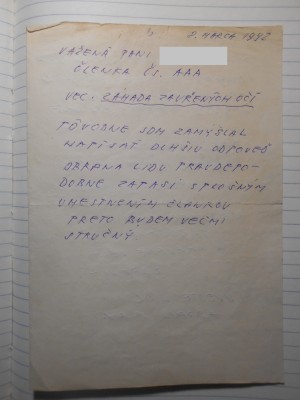 7. MARCA 1992
VÁŽENÁ PANI
ČLENKA ČS. AAA
VEC: ZÁHADA ZAVRETÝCH OČÍ
PÔVODNE SOM ZAMÝŠĽAL
NAPÍSAŤ DLHŠIU ODPOVEĎ
PRAVDEPO-
DOBNE ZÁPASÍ S
UMESTNENÍM ČLÁNKOV
PRETO BUDEM VEĽMI
STRUČNÝ